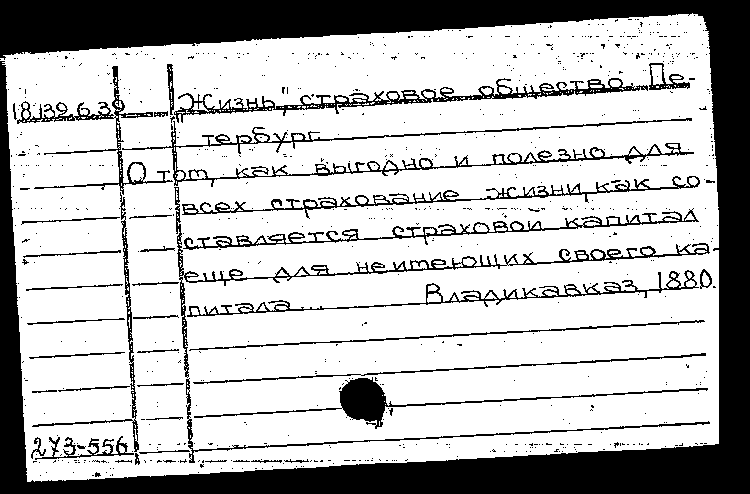 18.139.6.39
"Жизнь", страховое общество. Пе-
тербург.
О том, как выгодно и полезно для
всех страхование жизни, как со-
ставляется страховой капитал
еще для неимеющих своего ка-
питала... Владикавказ, 1880.
273-556